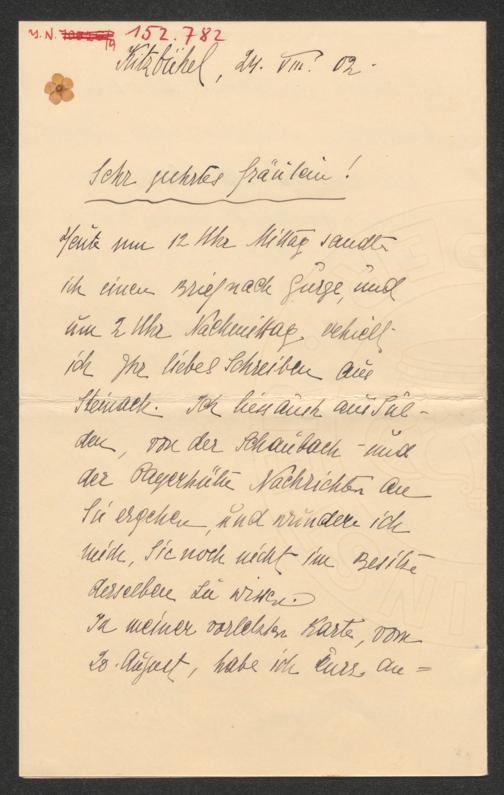 J. N. 152.782
Kitzbühel, 24. VIII. 02.
Sehr geehrtes Fräulein!
Heute um 12 Uhr Mittag sandte
ich einen Brief nach Gurgl, und
um 2 Uhr Nachmittag erhielt
ich Ihr liebes Schreiben aus
Steinach. Ich liess auch aus Söl-
den, von der Schaubach- und
der Payerhütte Nachrichten an
Sie ergehen, und wundere ich
mich, Sie noch nicht im Besitze
derselben zu wissen.
In meiner vorletzten Karte, vom
20. August, habe ich kurz an=